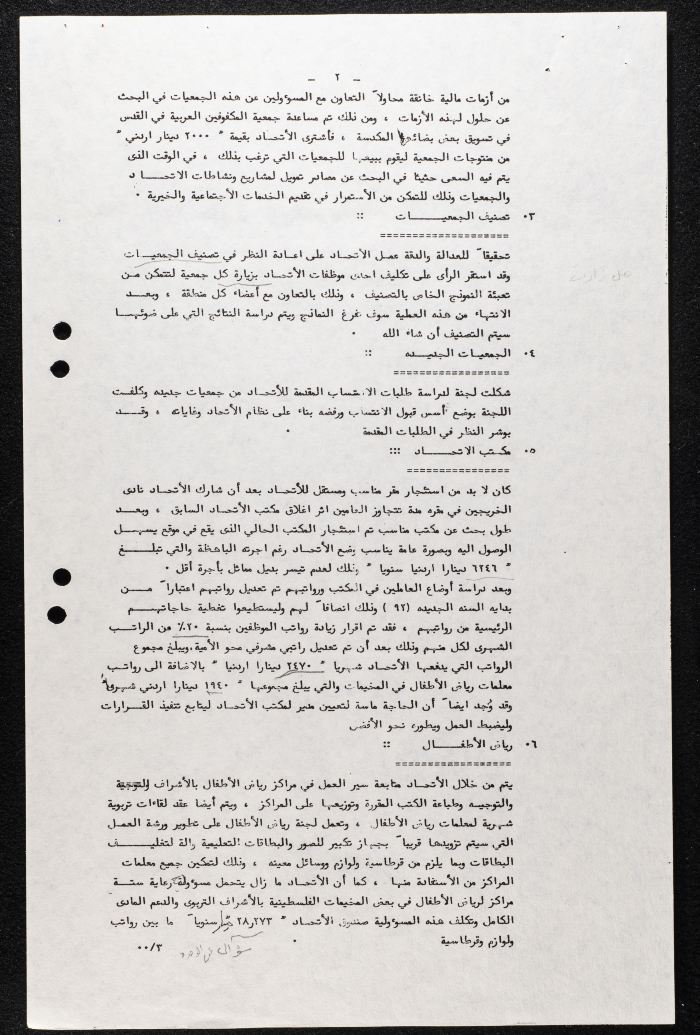 - ٢ -
من أزمات مالية خانقة محاولاً التعاون مع المسؤولين عن هذه الجمعيات في البحث
عن حلول لهذه الأزمات ، ومن ذلك تم مساعدة جمعية المكفوفين العربية في القدس
في تسويق بعض بضائعها المكدسة ، فأشترى الأتحاد بقيمة " ٢٠٠٠ دينار اردني "
من منتوجات الجمعية ليقوم ببيعها للجمعيات التي ترغب بذلك ، في الوقت الذى
يتم فيه السعى حثيثا في البحث عن مصادر تمويل لمشاريع ونشاطات الاتحـــاد
والجمعيات وذلك للتمكن من الأستمرار في تقديم الخدمات الأجتماعية والخيرية ٠
٠٣ تصنيف الجمعيـــــات ::
====================
تحقيقاً للعدالة والدقة عمل الأتحاد على اعادة النظر في تصنيف الجمعيـات
وقد استقر الرأى على تكليف احدى موظفات الأتحاد بزيارة كل جمعية لتتمكن مـن
تعبئة النموذج الخاص بالتصنيف ، وذلك بالتعاون مع أعضاء كل منطقة ، وبعـد
الانتهاء من هذه العملية سوف تفرغ النماذج ويتم دراسة النتائج التي على ضوئهـا
سيتم التصنيف أن شاء الله ٠
٠٤ الجمعيات الجديـده ::
==================
شكلت لجنة لدراسة طلبات الانتساب المقدمة للأتحاد من جمعيات جديده وكلفـت
اللجنة بوضع أسس قبول الانتساب ورفضه بناء على نظام الأتحاد وغاياته ، وقــد
بوشر النظر في الطلبات المقدمة ٠
٠٥ مكـتب الاتحـــــاد :::
================
كان لا بد من استئجار مقر مناسب ومستقل للأتحاد بعد أن شارك الأتحاد نادى
الخريجين في مقره مدة تتجاوز العامين اثر اغلاق مكتب الأتحاد السابق ، وبعـد
طول بحث عن مكتب مناسب تم استئجار المكتب الحالي الذى يقع في موقع يسهـل
الوصول اليه وبصورة عامة يناسب وضع الأتحاد رغم اجرته الباهظة والتي تبلـــغ
" ٦٢٤٦ دينارا اردنيا سنويا " وذلك لعدم تيسر بديل مماثل بأجرة أقل ٠
وبعد دراسة أوضاع العاملين في المكتب ورواتبهم تم تعديل رواتبهم اعتباراً مـــن
بدايه السنه الجديده ( ٩٢ ) وذلك انصافاً لهم وليستطيعوا تغطية حاجاتهــم
الرئيسية من رواتبهم ، فقد تم اقرار زيادة رواتب الموظفين بنسبة ٢٠٪ من الراتـب
الشهرى لكل منهم وذلك بعد أن تم تعديل راتبي مشرفي محو الأمية،ويبلغ مجموع
الرواتب التي يدفعها الأتحاد شهريا " ٢٤٧٠ دينارا اردنيا " بالاضافة الى رواتـب
معلمات رياض الأطفال في المخيمات والتي يبلغ مجموعها " ١٩٤٠ دينارا اردني شهريا "
وقد وُجد ايضاً أن الحاجة ماسة لتعيين مدير لمكتب الأتحاد ليتابع تنفيذ القـرارات
وليضبط العمل ويطوره نحو الأفضل
٠٦ رياض الأطفـــــال ::
==================
يتم من خلال الأتحاد متابعة سير العمل في مراكز رياض الأطفال بالأشراف
والتوجيه وطباعة الكتب المقررة وتوزيعها على المراكز ، ويتم أيضا عقد لقاءات تربوية
شهرية لمعلمات رياض الأطفال ، وتعمل لجنة رياض الأطفال على تطوير ورشة العمـل
التي سيتم تزويدها قريباً بجهاز تكبير للصور والبطاقات التعليمية والة لتغليـــف
البطاقات وبما يلزم من قرطاسية ولوازم ووسائل معينه ، وذلك لتمكين جميع معلمات
المراكز من الأستفادة منها ، كما أن الأتحاد ما زال يتحمل مسؤولية رعاية ستـة
مراكز لرياض الأطفال في بعض المخيمات الفلسطينية بالأشراف التربوى والدعم المادى
الكامل وتكلف هذه المسؤولية صندوق الأتحاد " ٢٨ر٢٧٣ سنوياً ما بين رواتب
ولوازم وقرطاسية ٠
٠٠/٣